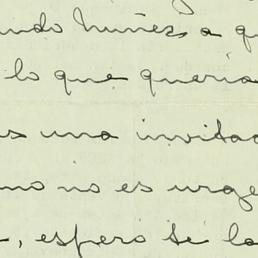 ndo Núñez a qu
lo que quería
s una invitac
mo no es urge
, espero te la